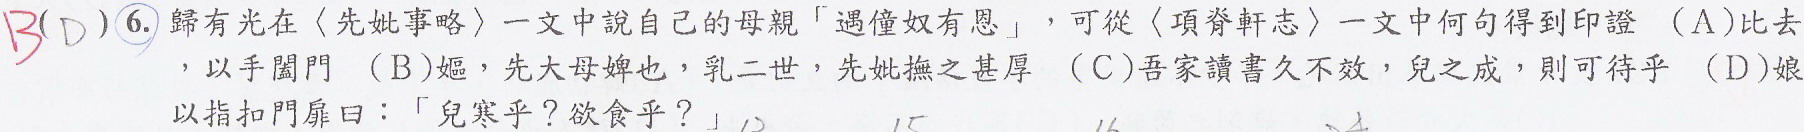 B(D)6. 歸有光在〈先妣事略〉一文中說自己的母親「遇僮奴有恩」，可從〈項脊軒志〉一文中何句得到印證 (A)比去
，以手闔門 (B)嫗，先大母婢也，乳二世，先妣撫之甚厚 (C)吾家讀書久不效，兒之成，則可待乎 (D)娘
以指扣門扉曰：「兒寒乎？欲食乎？」